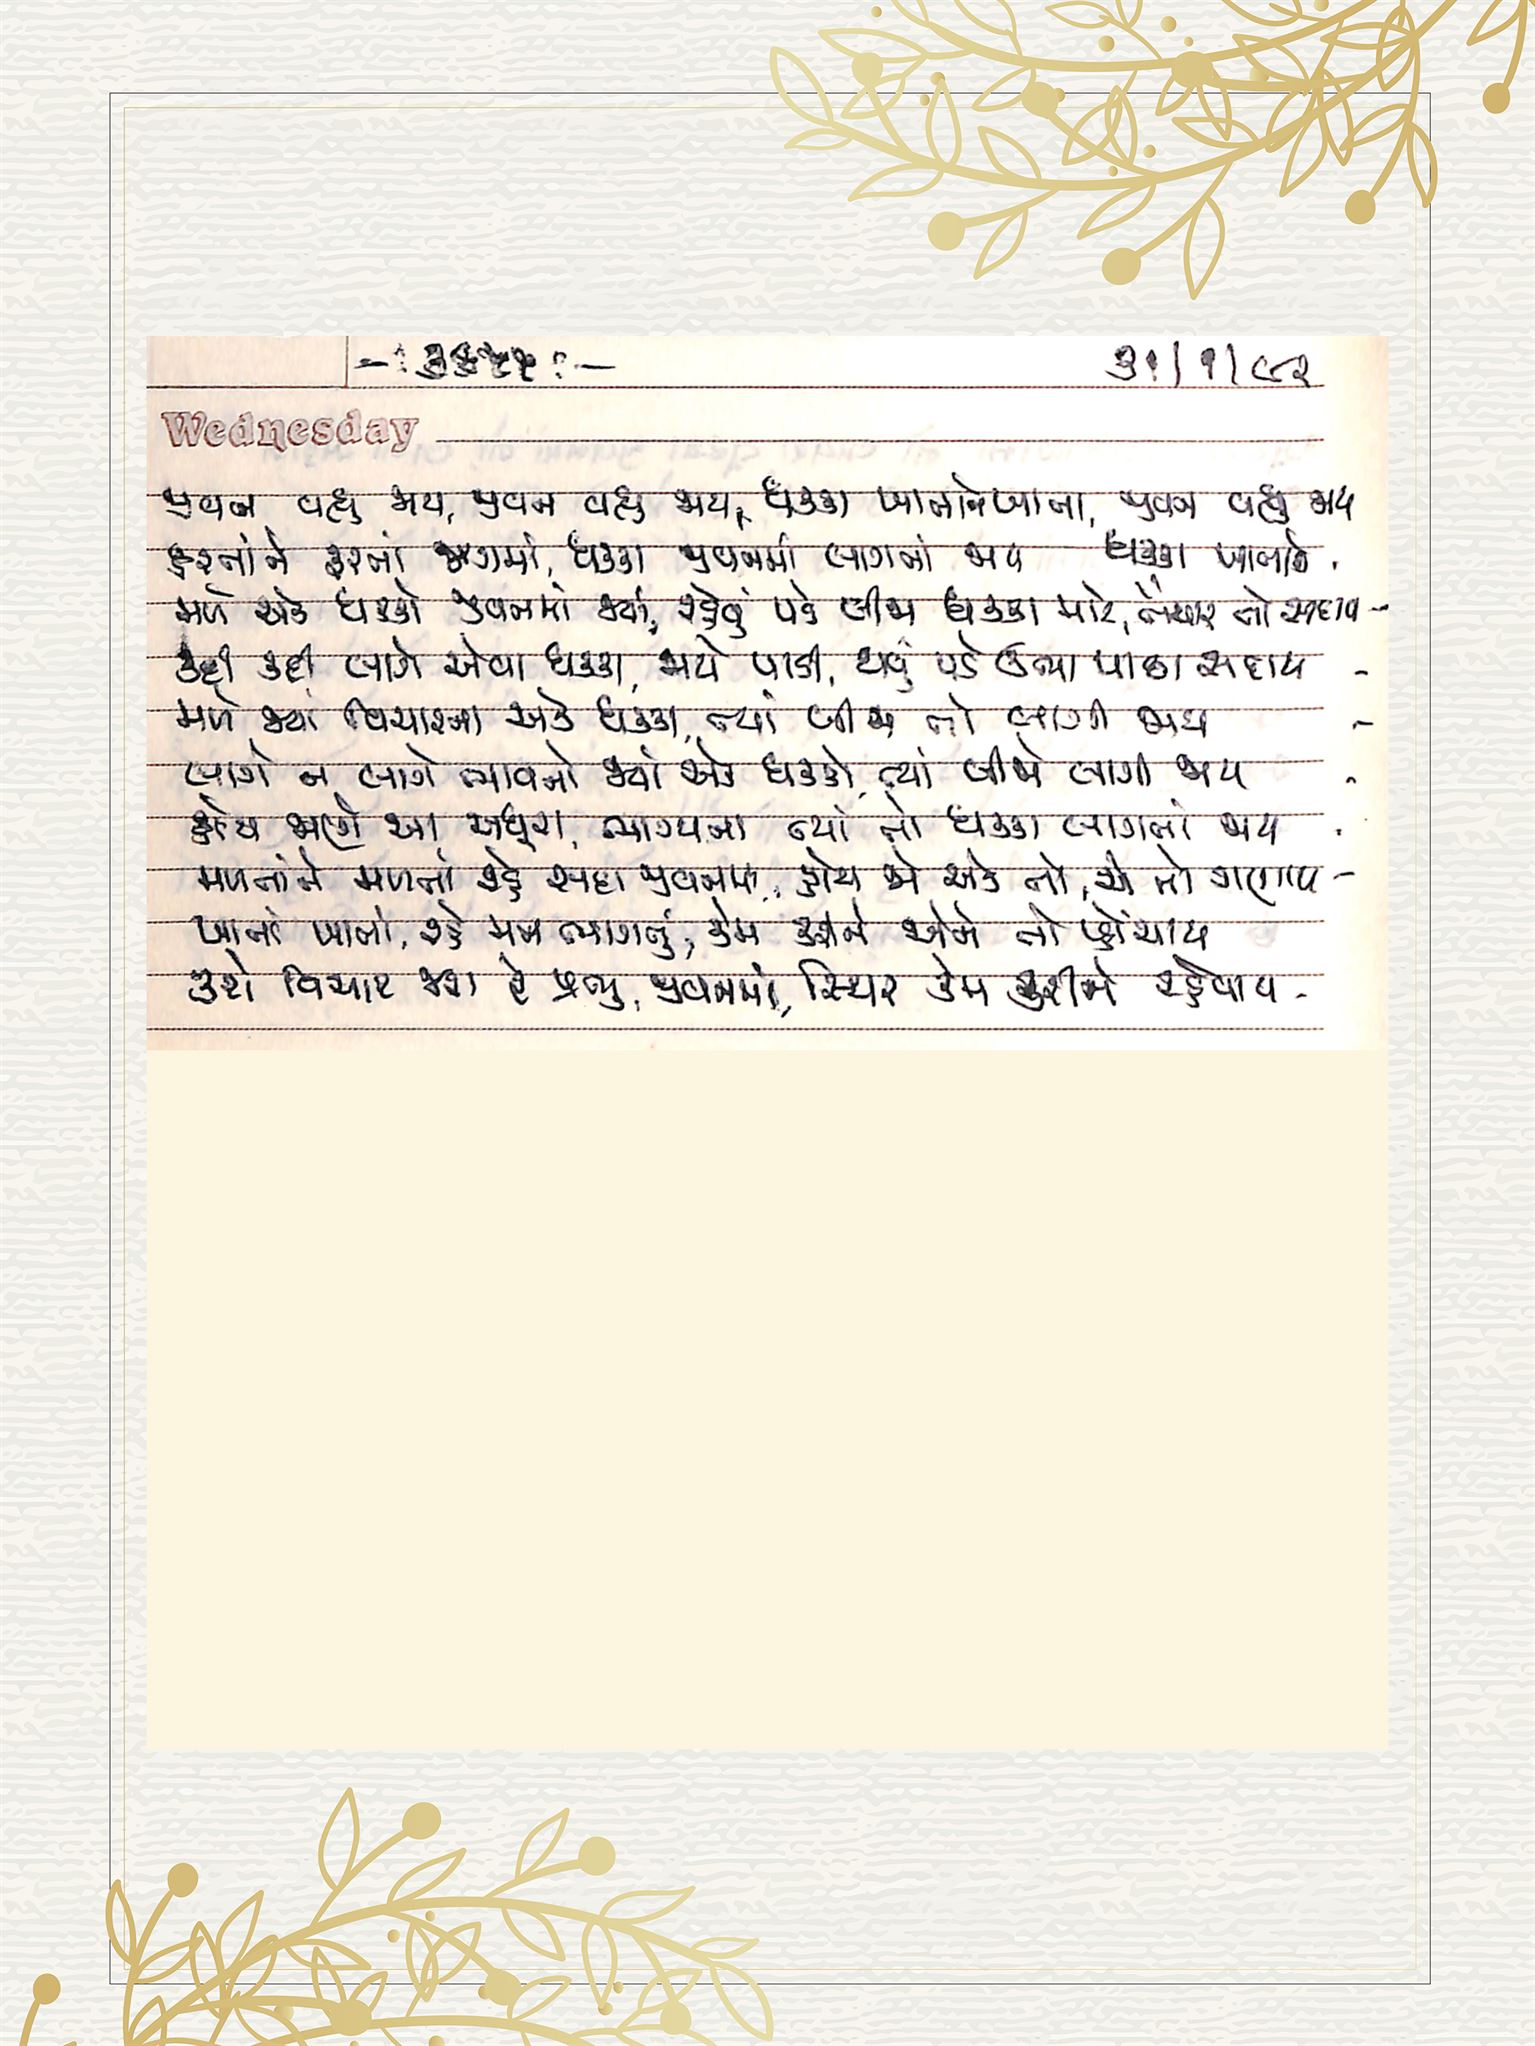 -: ૩૬૫૨ :-
૩૧/૧/૯૨
Wednesday
જીવન વધુ જાય, જીવન વધુ જાય, ધક્કા ખાતાંને ખાતા, જીવન વધુ જાય
ફરતાંને ફરતાં જગમાં, ધક્કા જીવનમાં લાગતાં જાય ધક્કા ખાતાંને .
મળે એક ધક્કો જીવનમાં જ્યાં, રહેવું પડે બીજા ધક્કા માટે, તૈયાર તો સદાય -
કદી કદી લાગે એવા ધક્કા, જાયે પાડી, થાવું પડે ઊભા પાછા સદાય -
મળે જ્યાં વિચારના એક ધક્કા, ત્યાં બીજા તો લાગી જાય -
લાગે ન લાગે ભાવનો જ્યાં એક ધક્કો, ત્યાં બીજો લાગી જાય -
જાણે આ અધૂરા, ભાગ્યના ત્યાં તો ધક્કા લાગતાં જાય .
મળતાંને મળતાં રહે સદા જીવનમાં, હોય જો એક તો, એ તો ગણાય -
ખાતાં ખાતાં, રહે મન ભાગતું, કેમ કરીને એને તો પહોંચાય
કરો વિચાર જરા રે પ્રભુ, જીવનમાં, સ્થિર કેમ કરીને રહેવાય -